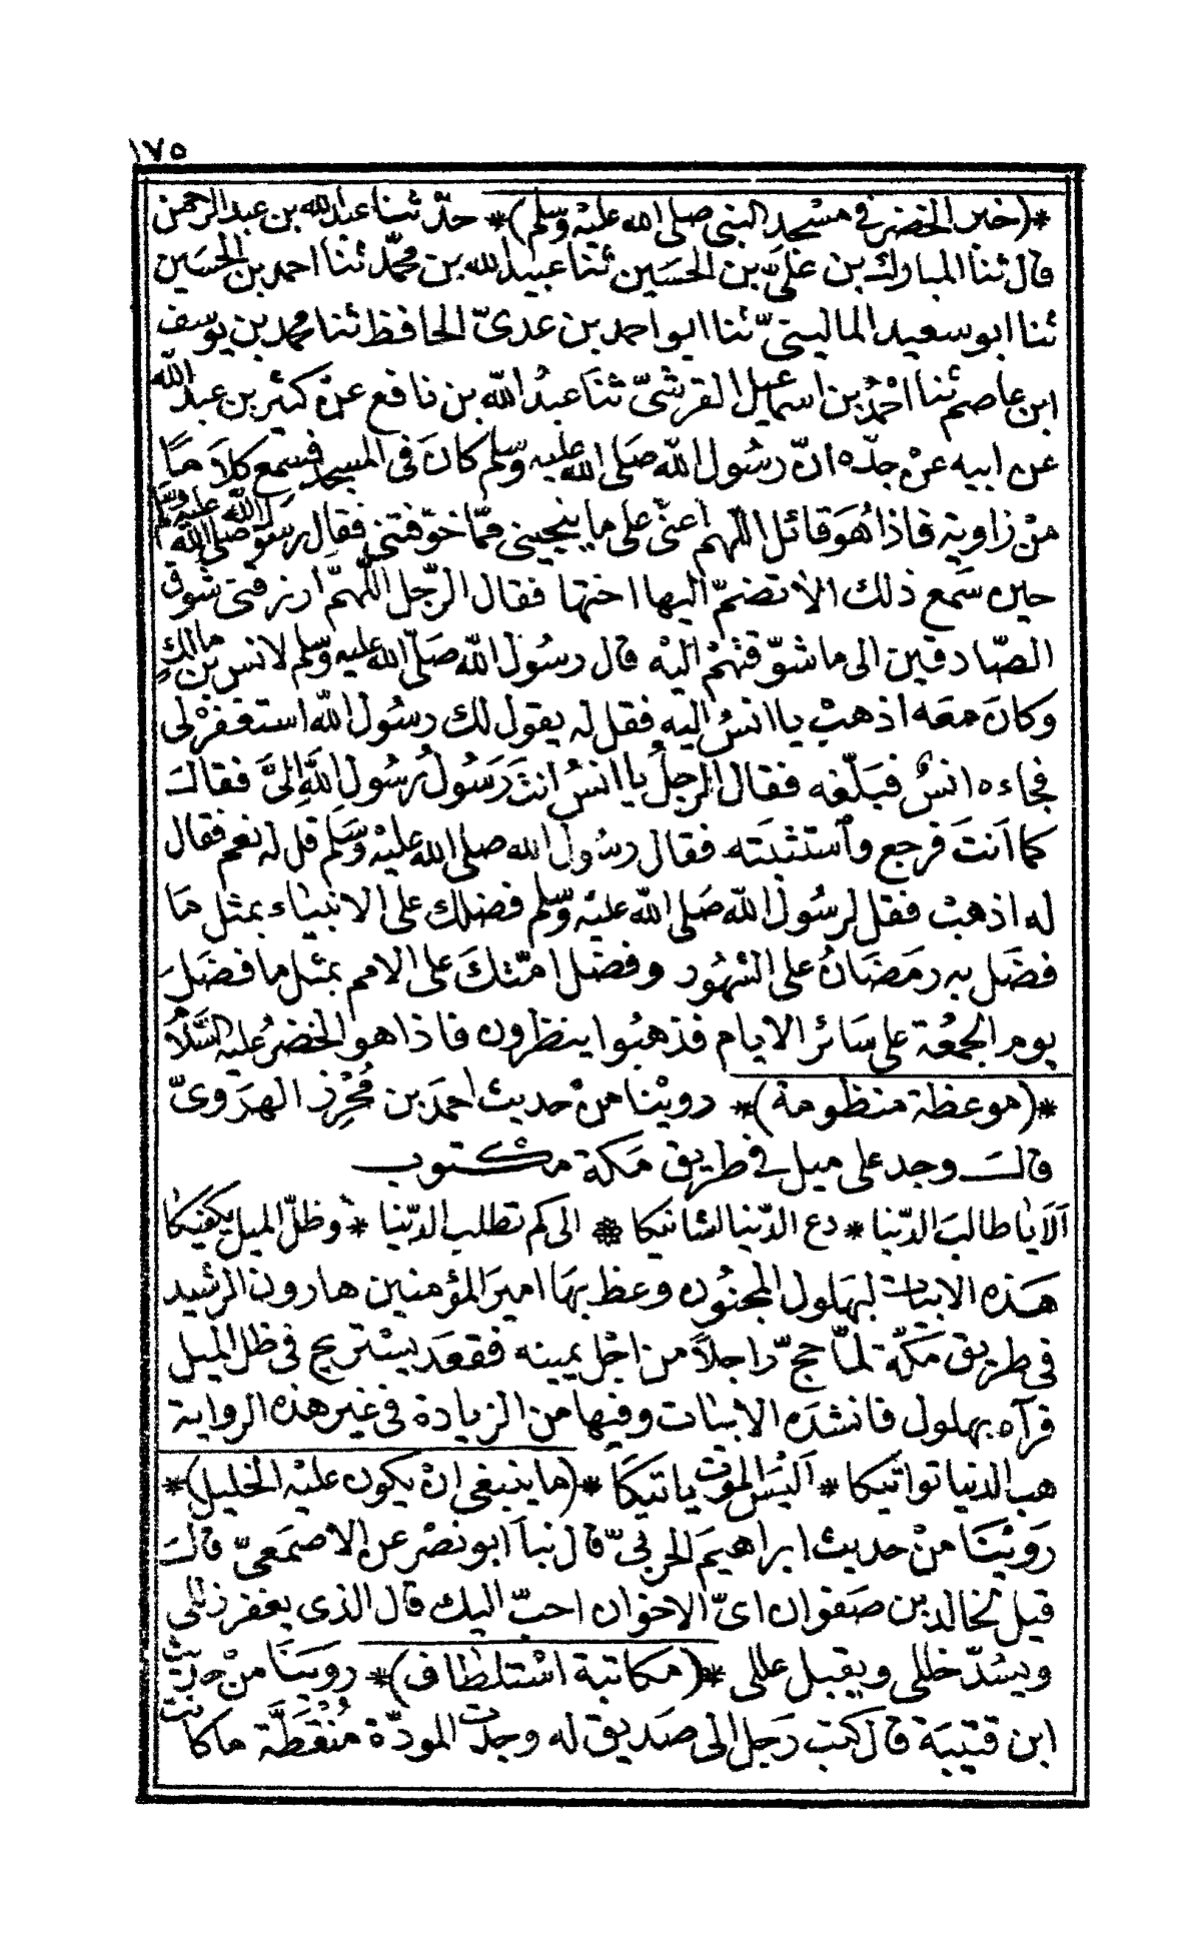 ١٧٥
*(خبر الخضر في مسجد النبي صلى الله عليه وسلم)* حدّثنا عبد الله بن عبد الرحمن
قال ثنا المبارك بن عليّ بن الحسين ثنا عبيد الله بن محمّد ثنا احمد بن الحسين
ثنا ابو سعيد الماليتيّ ثنا ابو احمد بن عديّ الحافظ ثنا محمد بن يوسف
ابن عاصم ثنا احْمدُ بن اسماعيل القرشيّ ثنا عبدُ الله بن نافع عنْ كثير بن عبد الله
عن ابيه عنْ جدّه انّ رسُول الله صَلى الله عليه وسلم كانَ في المسجد فسمع كلاَمًا
منْ زاوية فاذا هُوَ قائل اللهم اعنّي على ما ينجيني ممّا خوّفتني فقال رسول الله صلى الله عليه وسلم
حين سَمع ذلك الا تضمّ اليها اختها فقال الرّجل اللّهمّ ارزقني شوق
الصّادقين الى ما شوّقتهُمْ اليْه قال رسُول الله صَلّى الله عليه وسلم لانس بن مالك
وكانَ معَه اذهبْ يا انسُ اليه فقل له يقول لك رسُول الله استغفرْ لي
فجاءه انسٌ فبَلّغه فقال الرجلُ يا انسُ انتَ رَسُولُ رسُولِ اللهِ اليَّ فقال
كما انتَ فرجع واستثبَته فقال رسُول الله صلى الله عليْه وسَلم قل له نعم فقال
له اذهبْ فقل لرسُول الله صَلى الله عليْه وسّلم فضلك على الانبياء بمثل ما
فضَل به رمَضَانُ على الشهُور وفضل امّتكَ على الامم بمثل ما فضَلَ
يوم الجمُعَة على سَائر الايام فذهبُوا ينظرون فاذا هو الخضرُ عليه السَّلامُ
*(موعظة منظومة)* رويْنا منْ حديث احمَد بن مُحْرِز الهرَويّ
قال وجد على ميل في طريق مَكة مكتوب
اَلاَ يا طالبَ الدّنيا * دع الدّنيا لشانيكا * الى كم تطلب الدّنيا * وظلّ الميل يكفيكا
هَذه الابيات لبهلول المجنُون وعظ بهَا اميرَ المؤمنين هارون الرشيد
في طريق مَكّة لمّا حجّ راجلاً من اجْل يمينه فقعَد يسْتريح في ظل الميل
فرآه بهلول فانشدَه الابيات وفيها من الزيادة في غير هذه الرواية
هب الدنيا تواتيكا * اَليْسَ الموت ياتيكا *(ما ينبغي انْ يكون عليْه الخليل)*
رَوَيْنَا منْ حديث ابراهيمَ الحربيّ قال نبأ ابو نصْر عن الاصمَعيّ قال
قيل لخالد بن صَفوان ايّ الاخوان احبّ اليك قال الذي يغفر زللي
ويسُدّ خللي ويقبل عللي *(مكاتبة اسْتلطاف)* رويْنَا منْ حديث
ابن قتيْبَة قال كتب رَجل الى صَديق له وجدت المودّة مُنْقَطَّة ما كانت